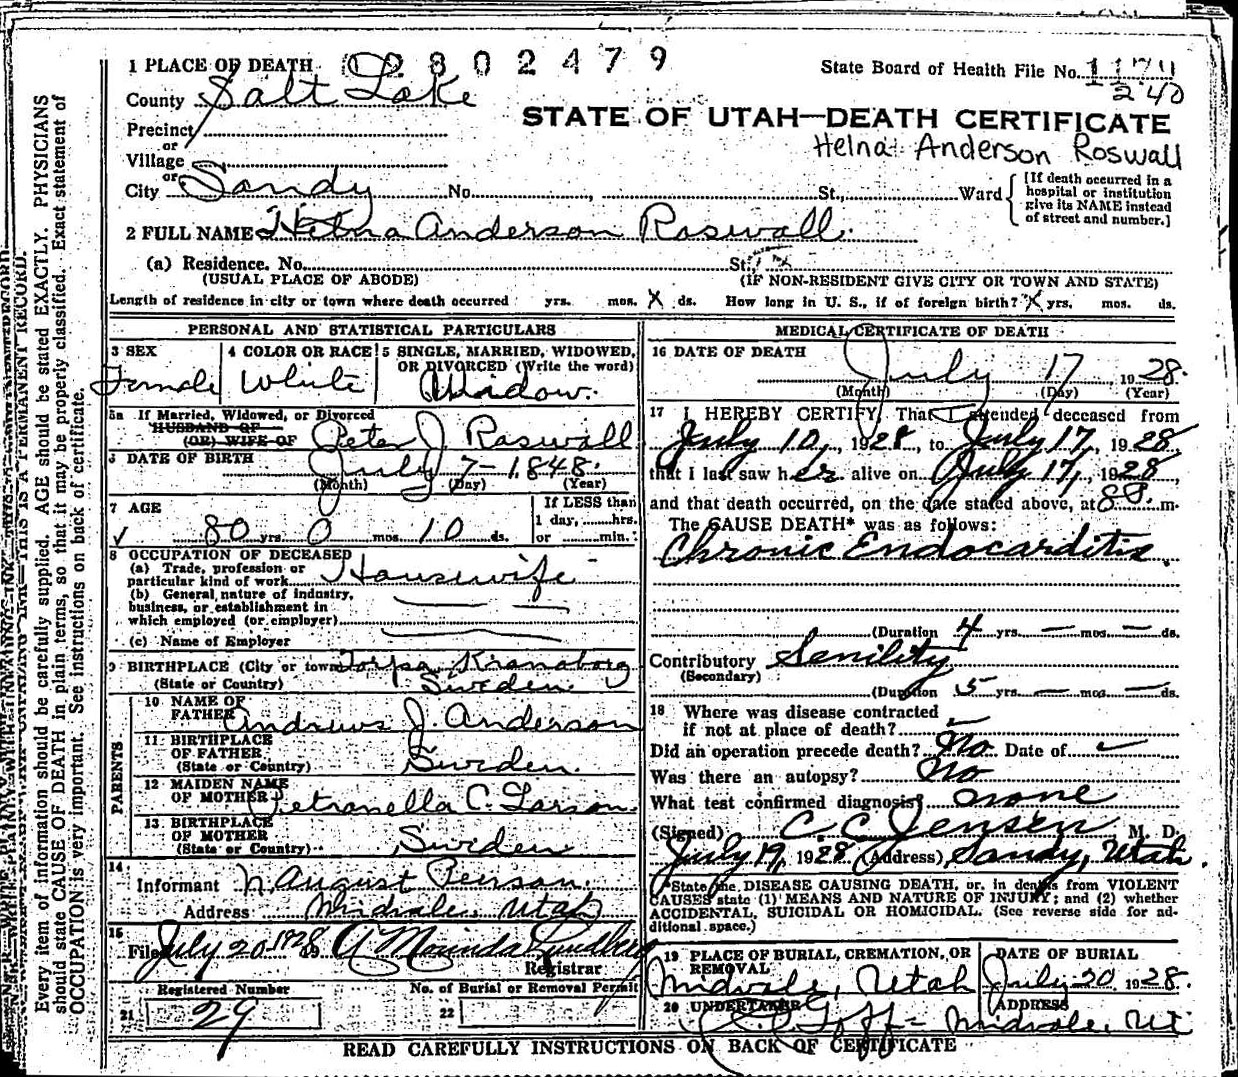 1 PLACE OF DEATH 02802479
State Board of Health File No. 1179
240
County Salt Lake
STATE OF UTAH—DEATH CERTIFICATE
Precinct
or
Helna Anderson Roswall
Village
or
City Sandy No. St., Ward
[If death occurred in a hospital or institution give its NAME instead of street and number.]
2 FULL NAME Helna Anderson Roswall
(a) Residence. No. St.,
(USUAL PLACE OF ABODE) (IF NON-RESIDENT GIVE CITY OR TOWN AND STATE)
Length of residence in city or town where death occurred yrs. mos. X ds. How long in U. S., if of foreign birth? X yrs. mos. ds.
PERSONAL AND STATISTICAL PARTICULARS
3 SEX
Female
4 COLOR OR RACE
White
5 SINGLE, MARRIED, WIDOWED,
OR DIVORCED (Write the word)
Widow.
5a If Married, Widowed, or Divorced
HUSBAND OF
(OR) WIFE OF Peter J Roswall
6 DATE OF BIRTH July 7-1848.
(Month) (Day) (Year)
7 AGE
80 yrs. 0 mos. 10 ds.
If LESS than
1 day, hrs.
or min.
8 OCCUPATION OF DECEASED
(a) Trade, profession or
particular kind of work Housewife
(b) General nature of industry,
business, or establishment in
which employed (or employer)
(c) Name of Employer
9 BIRTHPLACE (City or town) Torpa Kronoborg
(State or Country) Sweden.
PARENTS
10 NAME OF
FATHER Andrews J. Anderson
11 BIRTHPLACE
OF FATHER
(State or Country) Sweden.
12 MAIDEN NAME
OF MOTHER Petronella C. Larson
13 BIRTHPLACE
OF MOTHER
(State or Country) Sweden
14
Informant N. August Pierson.
Address Midvale, Utah
15
Filed July 20 1928 19 A Morinda Lundberg
Registrar
Registered Number
No. of Burial or Removal Permit
21 29
22
MEDICAL CERTIFICATE OF DEATH
16 DATE OF DEATH
July 17, 1928.
(Month) (Day) (Year)
17 I HEREBY CERTIFY, That I attended deceased from
July 10, 1928, to July 17, 1928
that I last saw her alive on July 17, 1928,
and that death occurred, on the date stated above, at m.
The CAUSE DEATH* was as follows:
Chronic Endocarditis.
(Duration 4 yrs. — mos — ds.
Contributory Senility
(Secondary)
(Duration 5 yrs. — mos. — ds.
18 Where was disease contracted
if not at place of death?
Did an operation precede death? No Date of
Was there an autopsy? No
What test confirmed diagnosis? none
(Signed) C. C. Jensen M. D.
July 19, 1928 (Address) Sandy, Utah.
*State the DISEASE CAUSING DEATH, or, in deaths from VIOLENT
CAUSES state (1) MEANS AND NATURE OF INJURY; and (2) whether
ACCIDENTAL, SUICIDAL OR HOMICIDAL. (See reverse side for ad-
ditional space.)
19 PLACE OF BURIAL, CREMATION, OR
REMOVAL
Midvale, Utah
DATE OF BURIAL
July 20, 1928.
20 UNDERTAKER
Goff
ADDRESS
Midvale, Ut
READ CAREFULLY INSTRUCTIONS ON BACK OF CERTIFICATE
Every item of information should be carefully supplied. AGE should be stated EXACTLY. PHYSICIANS
should state CAUSE OF DEATH in plain terms, so that it may be properly classified. Exact statement of
OCCUPATION is very important. See instructions on back of certificate.
THIS IS A PERMANENT RECORD.